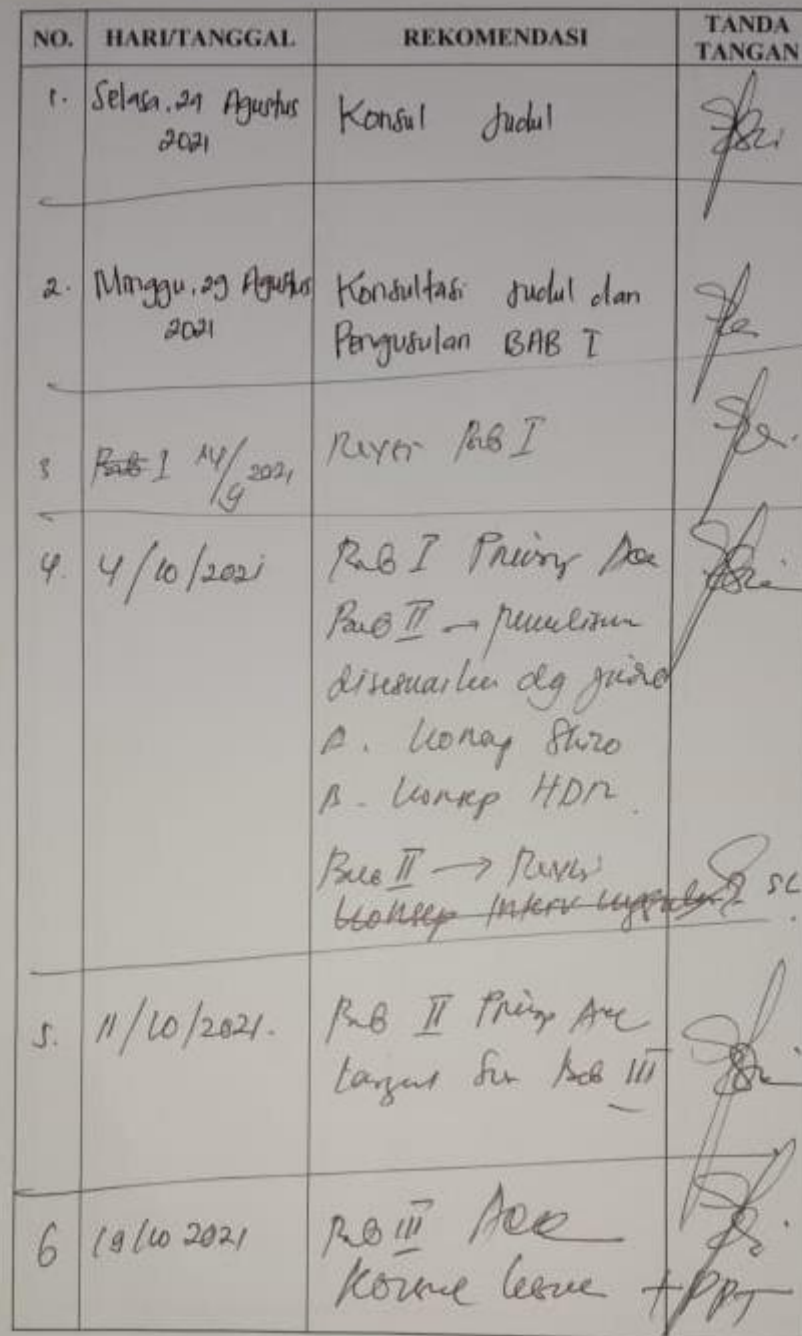 NO. HARI/TANGGAL REKOMENDASI TANDA TANGAN
1. Selasa, 24 Agustus 2021 Konsul Judul
2. Minggu, 29 Agustus 2021 Konsultasi Judul dan
Pengusulan BAB I
3 I 14/9 2021 Bab I
4. 4/10/2021 Bab I Acc
Bab II →
disesuaikan dg
A. Konsep Skizo
B. Konsep HDR
Bab II → Revisi
Konsep Interv
5. 11/10/2021. Bab II Acc
Bab III
6 19/10 2021 Bab III Acc
+ PPT